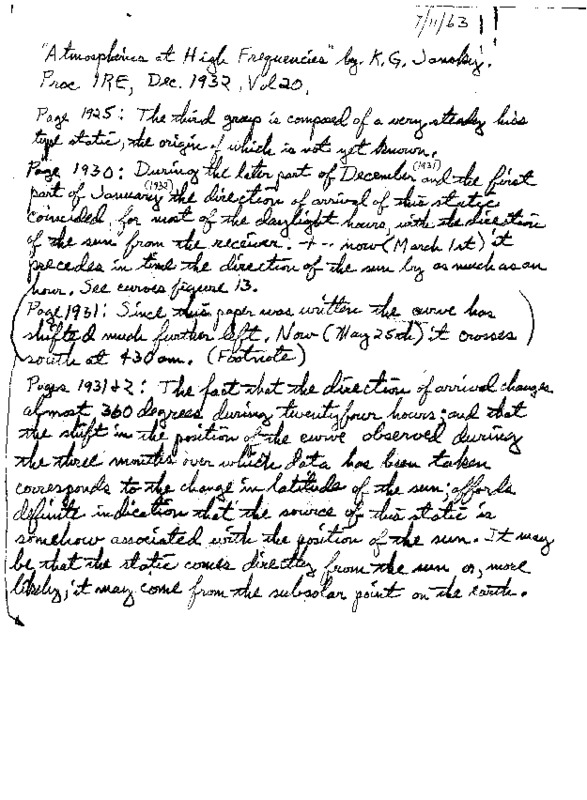 7/11/63
"Atmospherics at High Frequencies" by K.G. Jansky.
Proc IRE, Dec. 1932, Vol 20.
Page 1925: The third group is composed of a very steady hiss
type static, the origin of which is not yet known.
Page 1930: During the later part of December (1931) and the first
part of January (1932) the direction of arrival of this static
coincided, for most of the daylight hours, with the direction
of the sun from the receiver. - + - - now (March 1st) it
precedes in time the direction of the sun by as much as an
hour. See curves figure 13.
(Page 1931: Since this paper was written the curve has
shifted much further left. Now (May 25th) it crosses
south at 430 am. (Footnote))
Pages 1931+2: The fact that the direction of arrival changes
almost 360 degrees during twentyfour hours; and that
the shift in the position of the curve observed during
the three months over which data has been taken
corresponds to the change in latitude of the sun; affords
definite indication that the source of this static is
somehow associated with the position of the sun. It may
be that the static comes directly from the sun or, more
likely, it may come from the subsolar point on the earth.